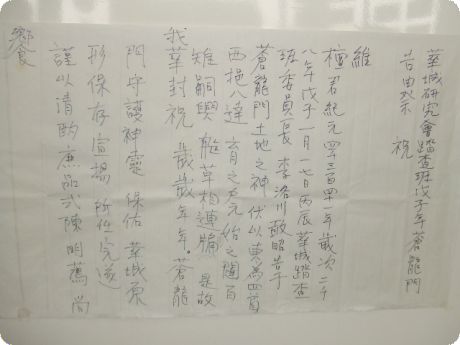 華城研究會踏査班戊子年蒼龍門
告由祭 祝
維
檀君紀元 四千三百四十一年 歲次 二千
八年 戊子 一月 一七日 丙辰 華城踏査
班委員長 李洛川 敢昭告于
蒼龍門 土地之神 伏以 東為四首
西挹八達 之方 元始之闢 百
雉嗣興 草相連 是故
我華封祝 歲歲年年。蒼龍
門守護神靈 保佑 華城原
形保存宣揚 所任完遂
謹以清酌 庶品式陳明薦 尚
饗